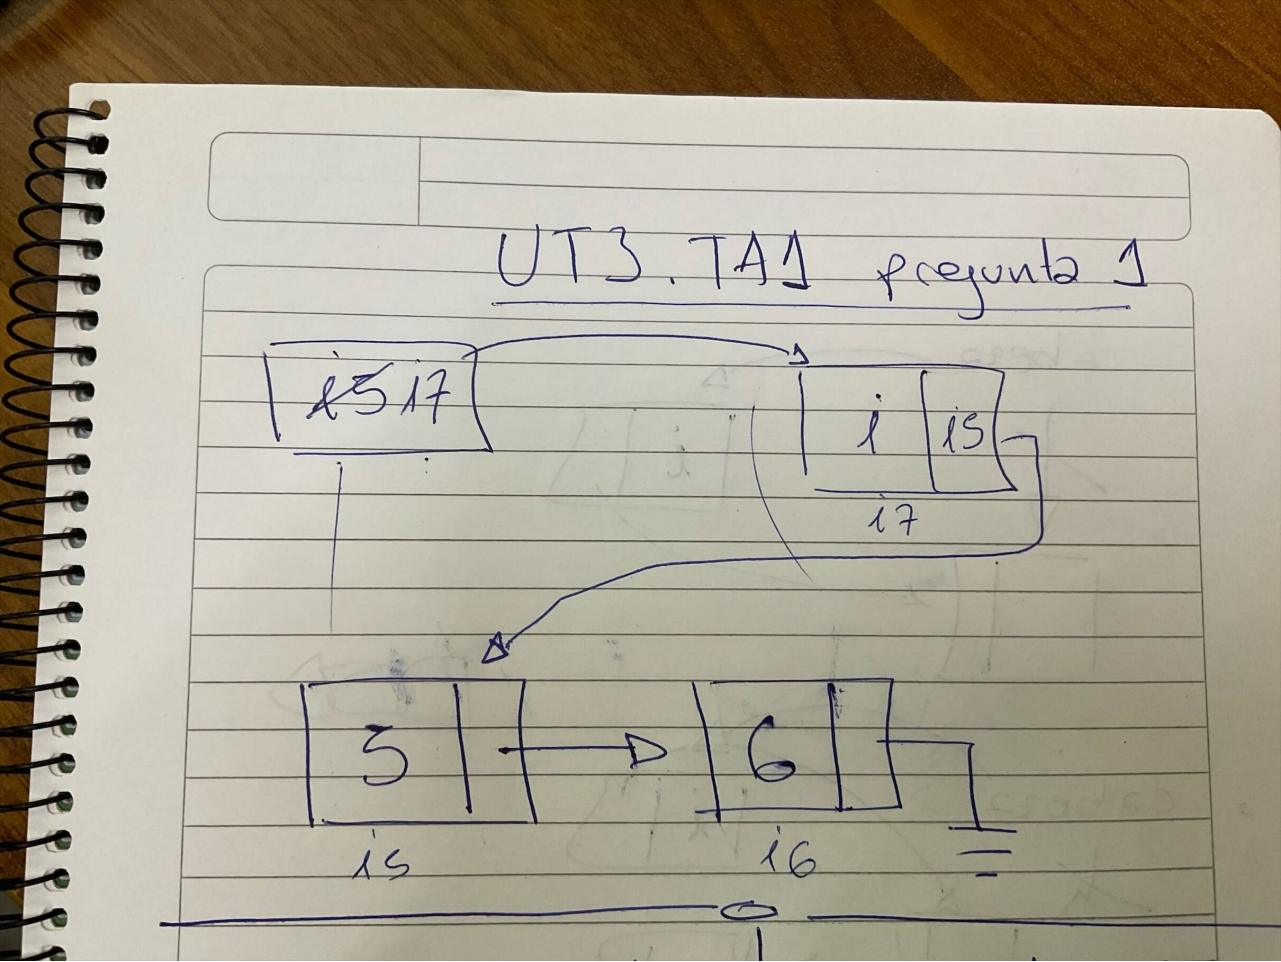 UT3.TA1 pregunta 1
i5 i7
i i5
i7
5 6
i5 i6